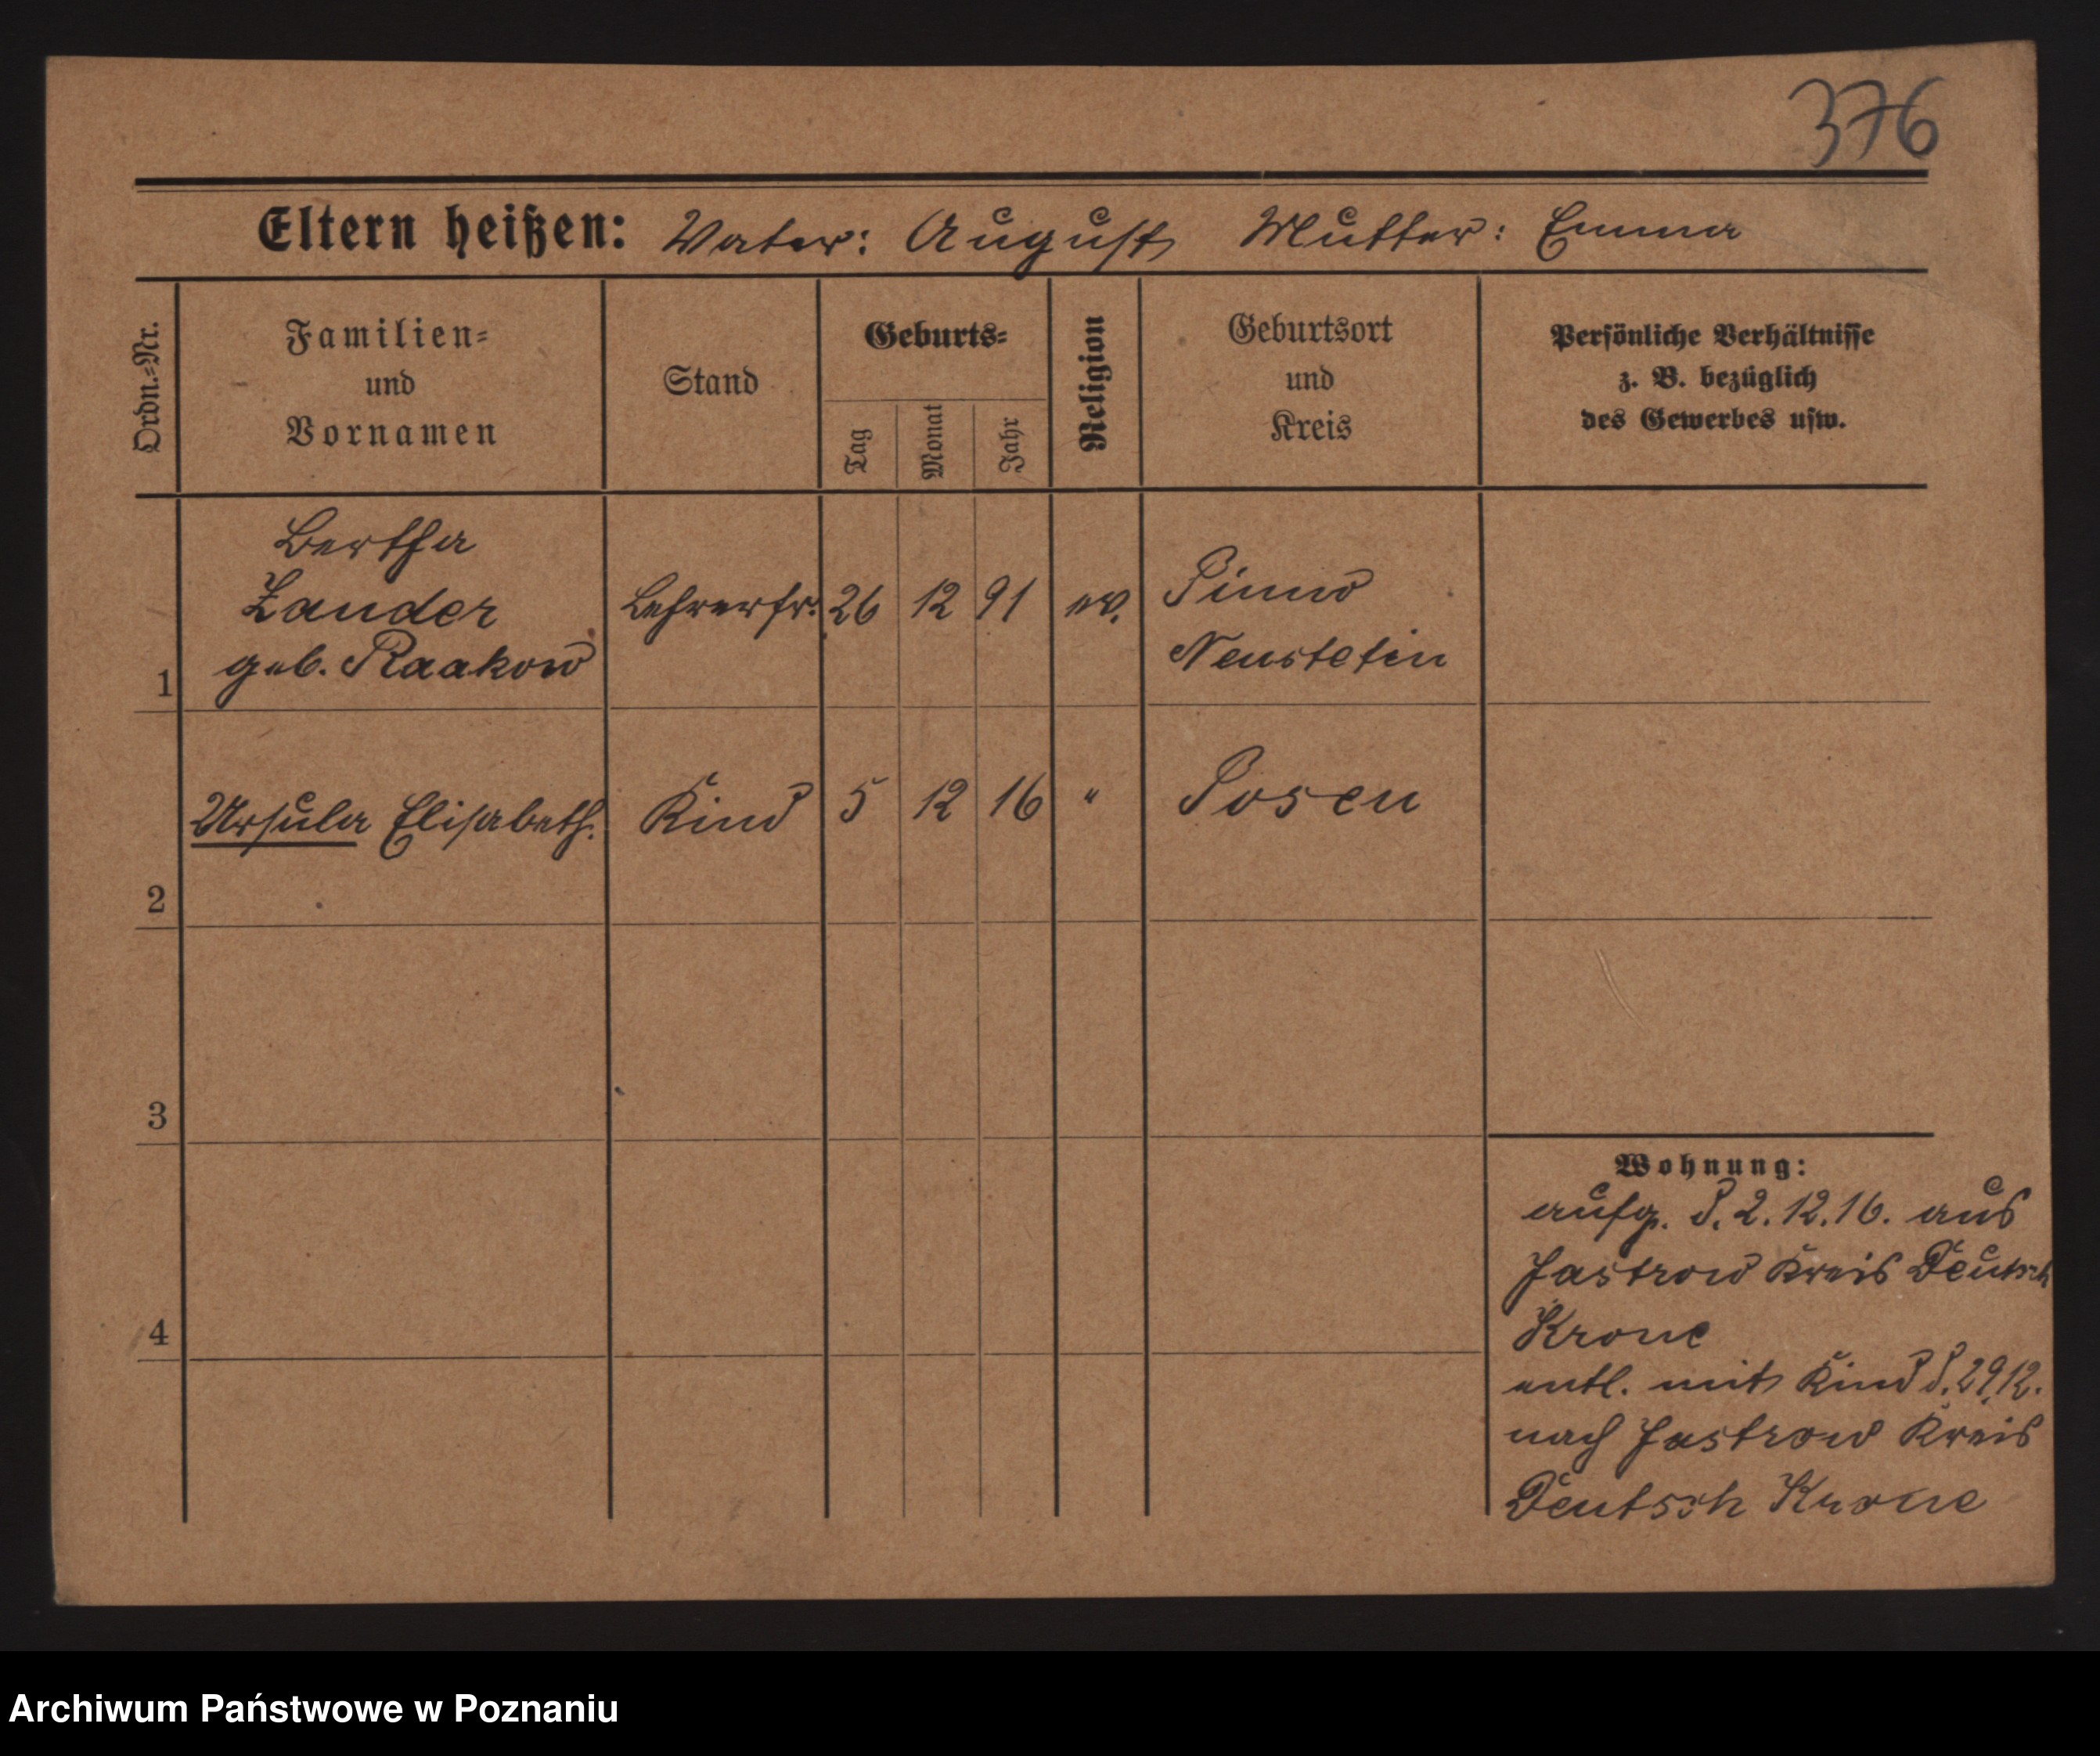 376
Eltern heißen: Vater: August Mutter: Emma
Ordn.-Nr.
Familien-
und
Vornamen
Stand
Geburts-
Tag
Monat
Jahr
Religion
Geburtsort
und
Kreis
Persönliche Verhältnisse
z. B. bezüglich
des Gewerbes usw.
Bertha
Zander
geb. Raakow
1
Lehrerfr.
26 12 91
ev.
Pinnow
Neustetin
Ursula Elisabeth.
2
Kind
5 12 16
"
Posen
3
4
Wohnung:
aufg. d. 2. 12. 16. aus
Jastrow Kreis Deutsch
Krone
entl. mit Kind d. 29.12.
nach Jastrow Kreis
Deutsch Krone
Archiwum Państwowe w Poznaniu